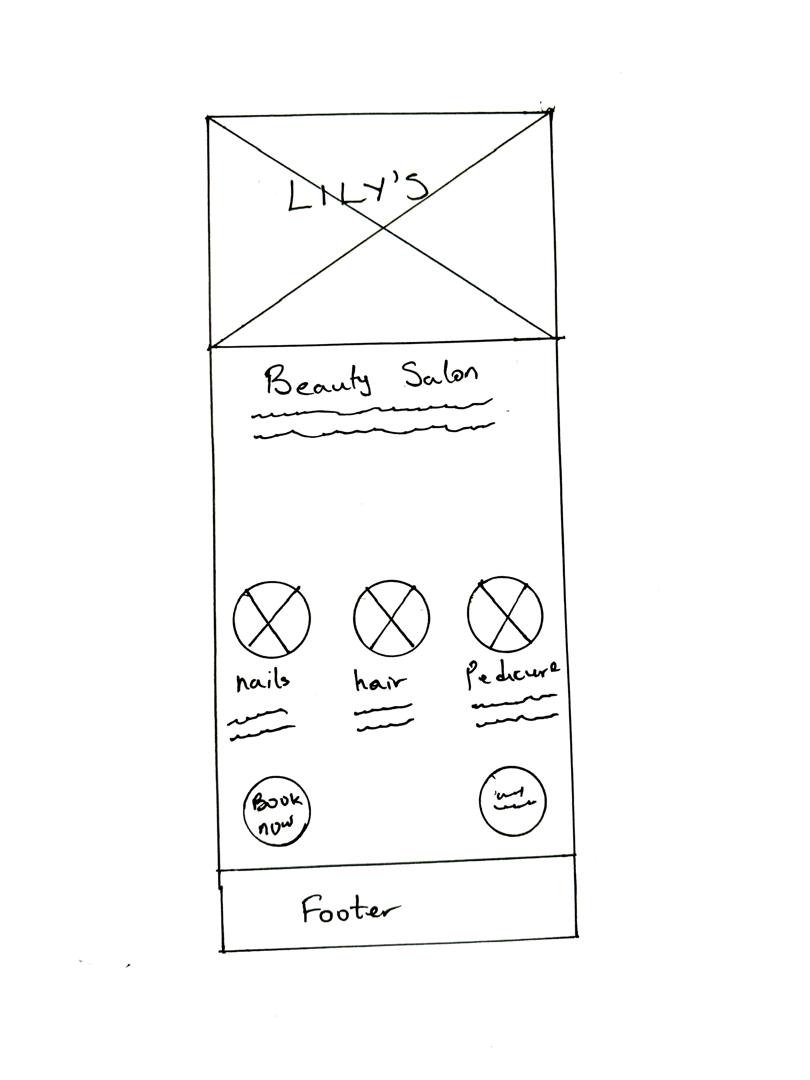 LILY'S
Beauty Salon
nails
hair
Pedicure
Book
now
Footer